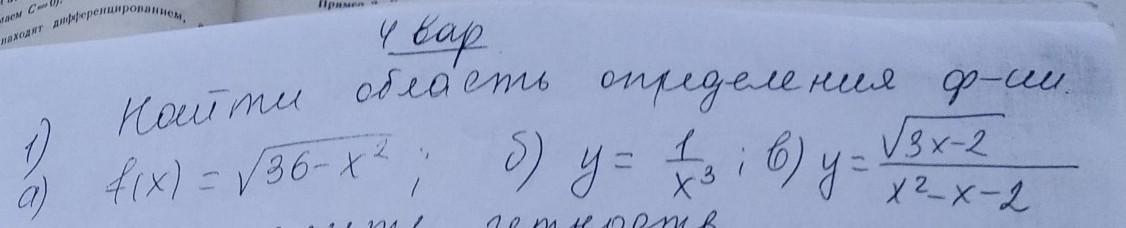 маем C=0).
находят дифференцированием,
4 вар
1) Найти область определения ф-ии.
а) f(x) = √(36-x²) ; б) y = 1/x³ ; в) y = √(3x-2)/(x²-x-2)